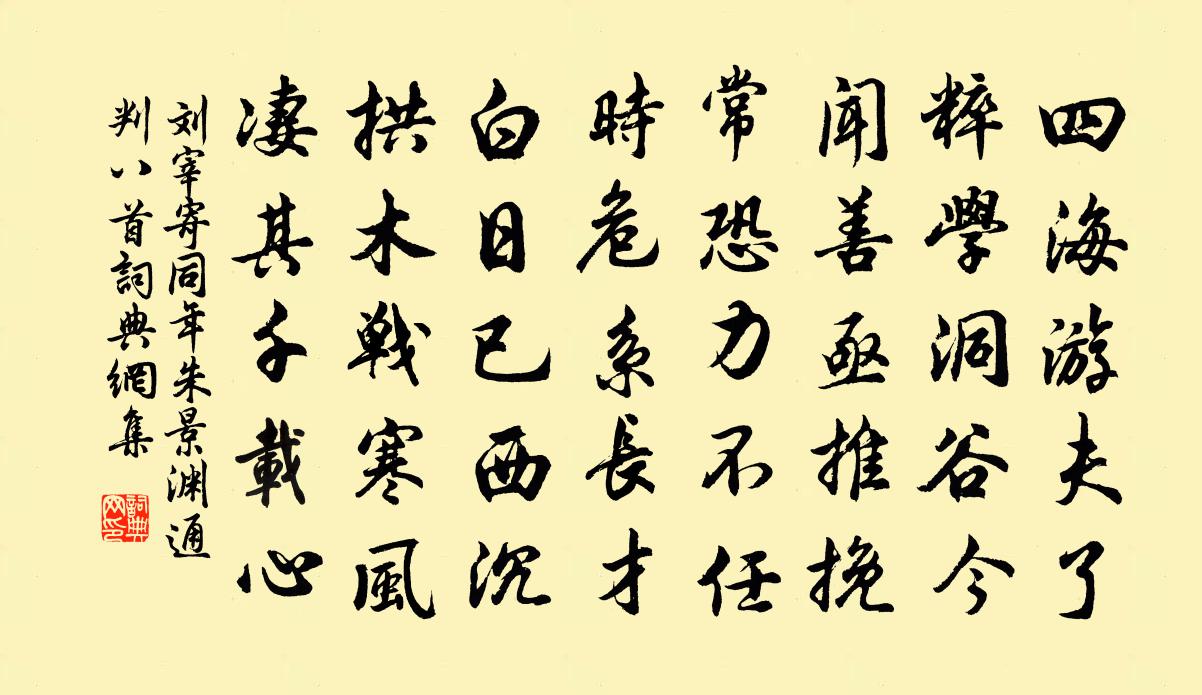 四海游夫了
粹學洞谷今
闻善亟推挽
常恐力不任
時危系長才
白日已西沉
拱木戰寒風
凄其千載心
刘宰寄同年朱景渊通
判八首詞典網集
詞典
网印